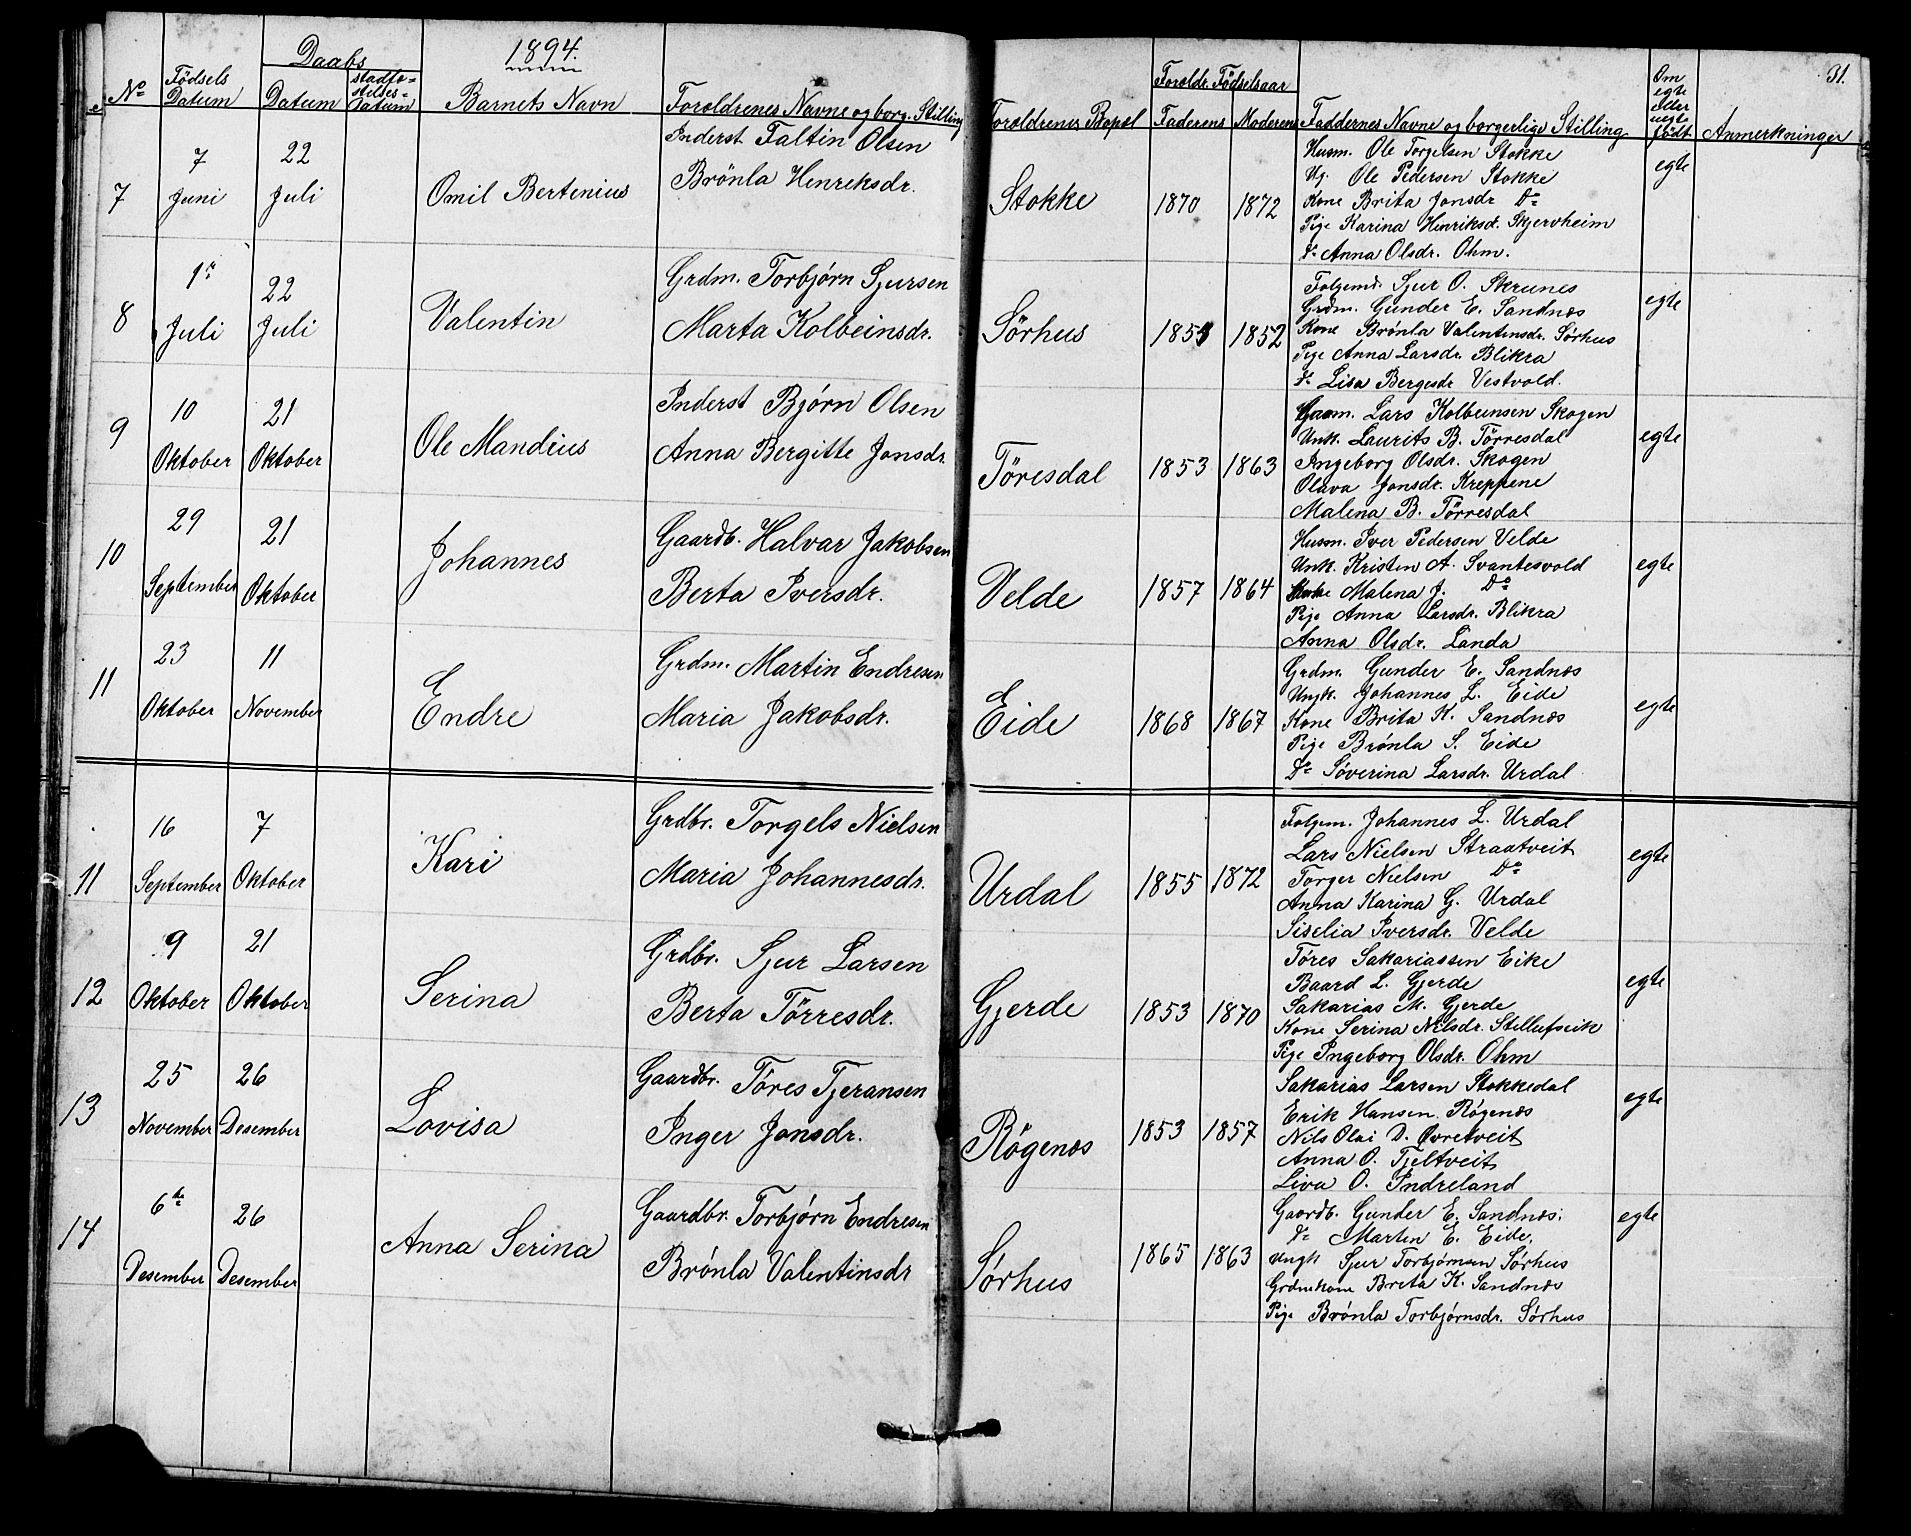 1894.
31.
No
Födsels Datum
Daabs
Datum
stadfæstelses Datum
Barnets Navn
Foroldrenes Navne og borg. Stilling
Foroldrenes Bopæl
Foroldr. Fødselsaar
Faderens
Moderens
Faddernes Navne og borgerlige Stilling
Om egte eller uegte født
Anmerkninger
7
7 Juni
22 Juli
Omil Bertenius
Inderst Faltin Olsen
Brönla Henreksdr.
Stokke
1870
1872
Husm. Ole Torgelsen Stokke
Ug. Ole Pedersen Stokke
Kone Brita Jonsdr Do
Pige Karina Henriksd. Skjervheim
Do Anna Olsdr. Ohm.
egte
8
1ste Juli
22 Juli
Valentin
Grdm. Torbjørn Sjursen
Marta Kolbeinsdr.
Sörhus
1852
Folgemd. Sjur O. Skrunes
Grdm. Gunder E. Sandnæs
Kone Brönla Valentinsdr. Sörhus
Pige Anna Larsdr. Blikra
Do Lisa Bergesdr Vestvold.
egte
9
10 Oktober
21 Oktober
Ole Mandius
Inderst Björn Olsen
Anna Bergitte Jonsdr.
Töresdal
1853
1863
Lars Kolbeinsen Skogen
Unk. Laurits B. Törresdal
Ingeborg Olsdr. Skogen
Olava Jonsdr. Kreppene
Malena B. Törresdal
egte
10
29 September
21 Oktober
Johannes
Gaardb. Halvar Jakobsen
Berta Iversdr.
Velde
1857
1864
Husm. Iver Pedersen Velde
Unk. Kristen A. Svantesvold
Malena J. Do
Pige Anna Larsdr. Blikra
Anna Olsdr. Landa
egte
11
23 Oktober
11 November
Endre
Grdm. Martin Endresen
Maria Jakobsdr.
Eide
1868
1867
Grdm. Gunder E. Sandnæs
Ungk. Johannes L. Eide
Kone Brita K. Sandnæs
Pige Brönla S. Eide
Do Söverina Larsdr. Urdal
egte
11
16 September
7 Oktober
Kari
Grdbr. Torgels Nielsen
Maria Johannesdr.
Urdal
1855
1872
Folgem. Johannes L. Urdal
Lars Nielsen Straatveit
Torger Nielsen Do
Anna Karina G. Urdal
Siselia Iversdr. Velde
egte
12
9 Oktober
21 Oktober
Serina
Grdbr. Sjur Larsen
Berta Törresdr.
Gjerde
1853
1870
Töres Sakariassen Eike
Baard L. Gjerde
Sakarias M. Gjerde
Kone Serina Nilsdr.
Pige Ingeborg Olsdr. Ohm
egte
13
25 November
26 Desember
Lovisa
Gaardbr. Töres Tjeransen
Inger Jonsdr.
Rögenæs
1853
1857
Sakarias Larsen Stokkedal
Erik Hansen Rögenæs
Nils Olai D. Övretveit
Anna O. Tjeltveit
Liva O. Indreland
egte
14
6te Desember
26 Desember
Anna Serina
Gaardbr. Torbjørn Endresen
Brönla Valentinsdr
Sørhus
1865
1863
Gaardb. Gunder E. Sandnæs.
Do Marten E. Eide.
Ungk Sjur Torbjørnsen Sørhus
Grdmkone Breta K. Sandnæs
Pige Brönla Torbjørnsdr. Sørhus
egte